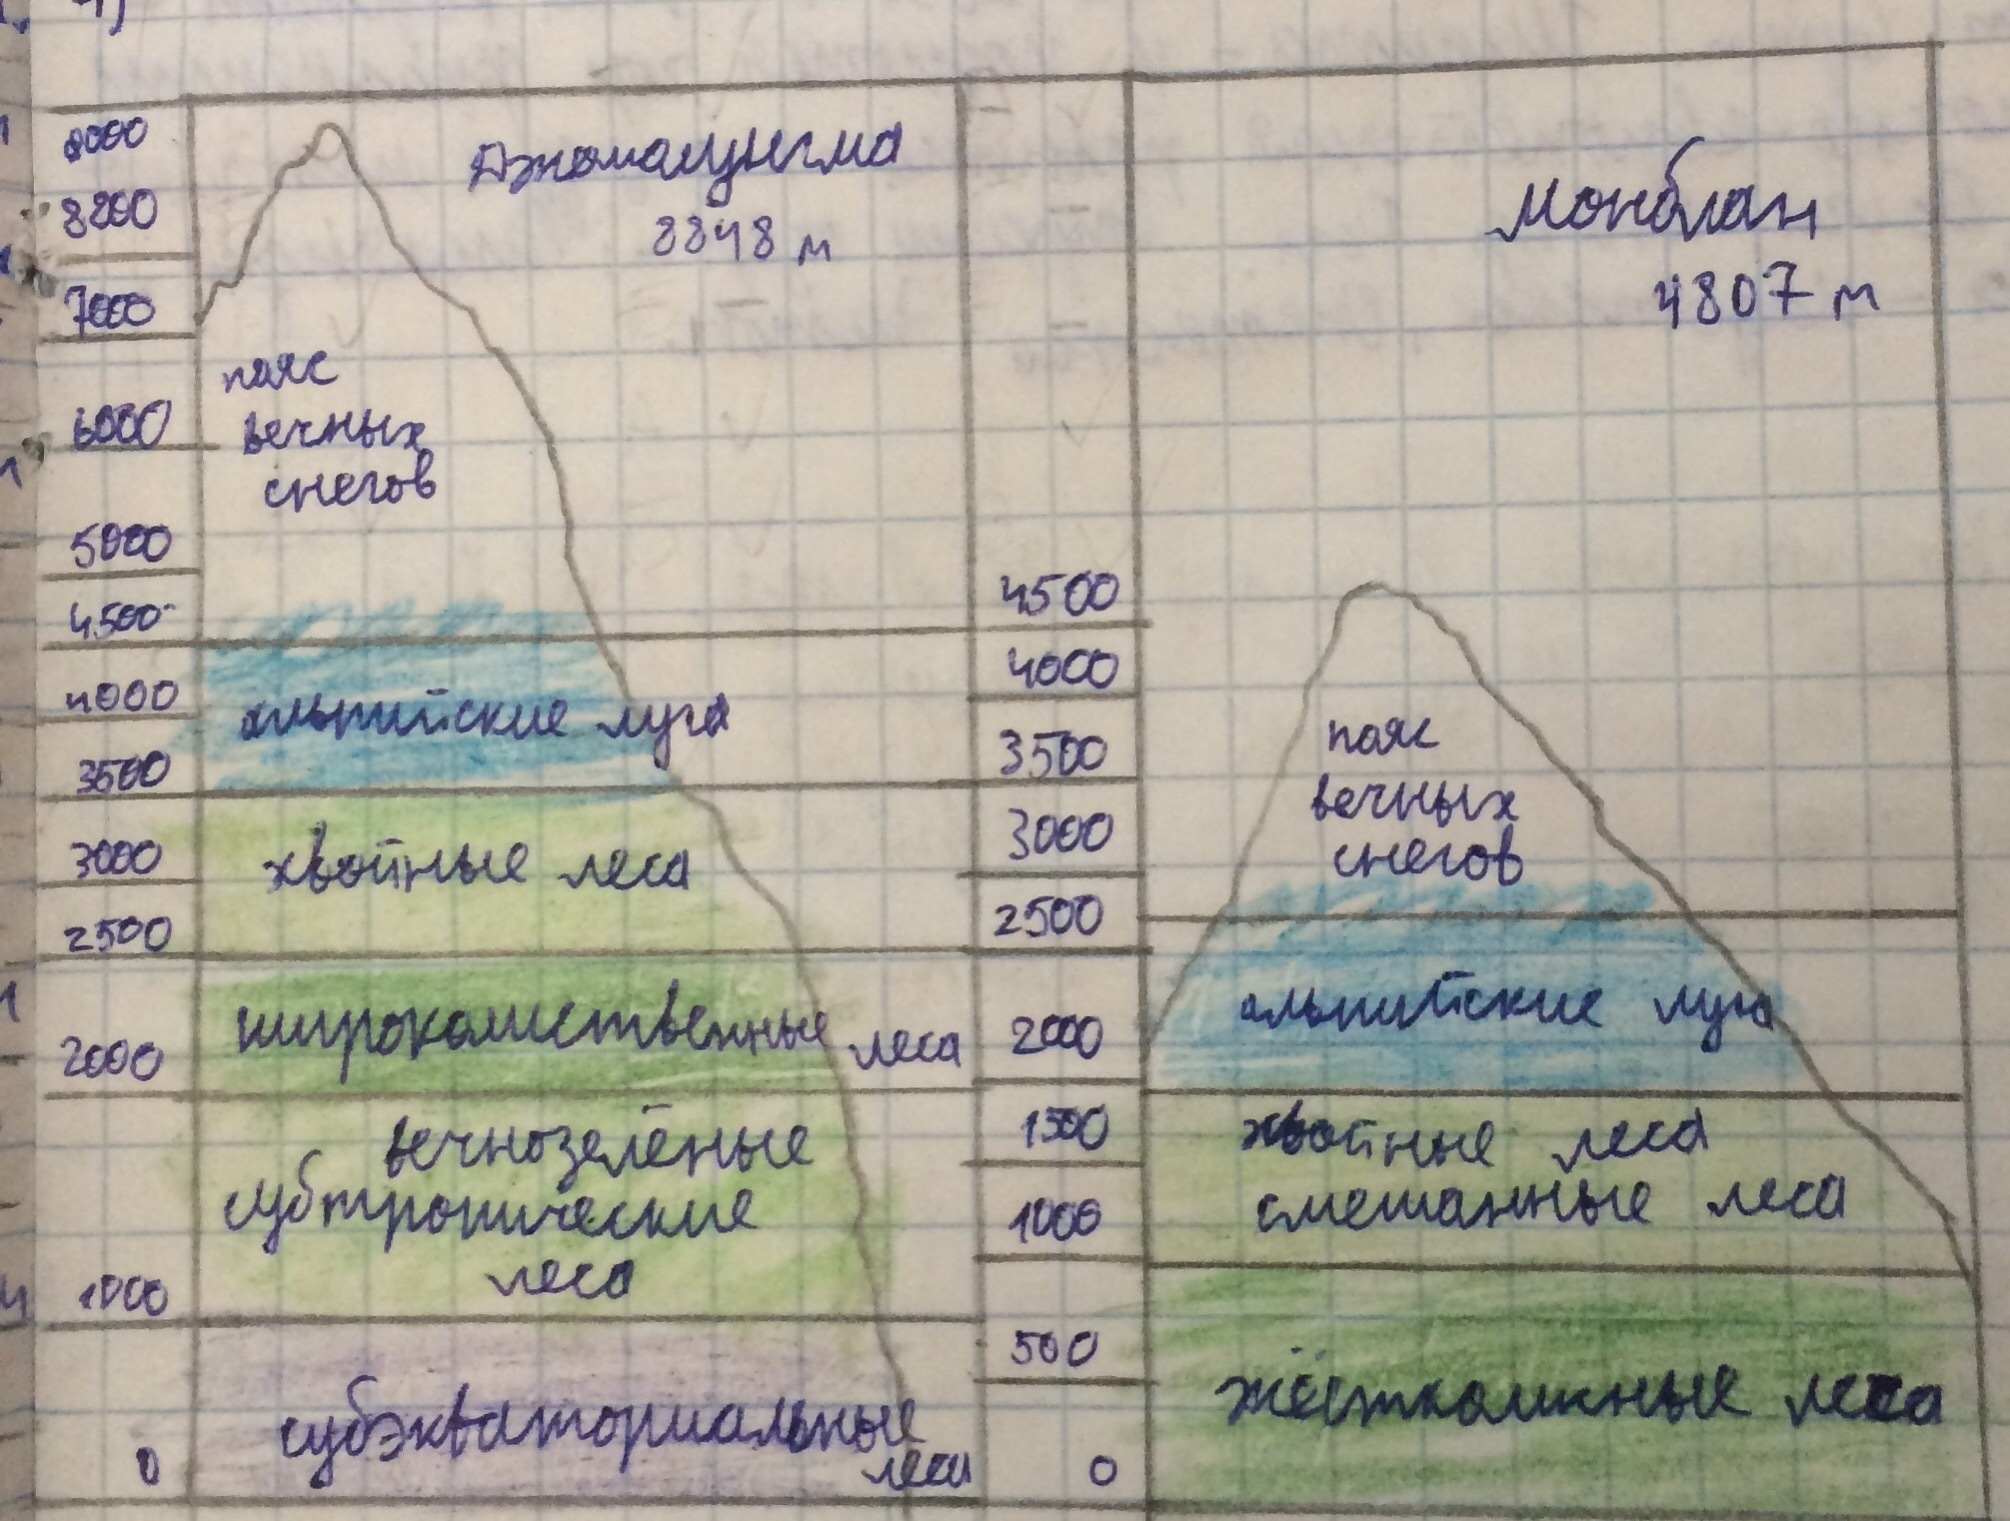 4)
9000
8200
7000
6000
5000
4500
4000
3500
3000
2500
2000
1000
0
Джомалунгма
8848 м
пояс
вечных
снегов
альпийские луга
хвойные леса
широколиственные леса
вечнозелёные
субтропические
леса
субэкваториальные
леса
4500
4000
3500
3000
2500
2000
1500
1000
500
0
Монблан
4807 м
пояс
вечных
снегов
альпийские луга
хвойные леса
смешанные леса
жёстколистные леса